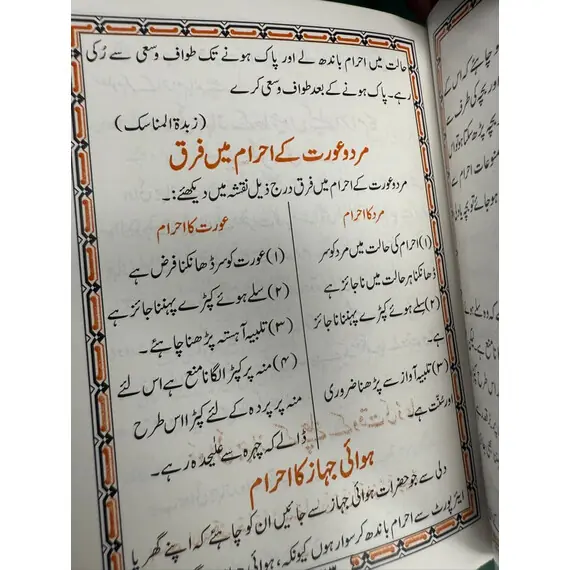 حالت میں احرام باندھ لے اور پاک ہونے تک طواف وسعی سے رُکی
رہے۔ پاک ہونے کے بعد طواف وسعی کرے
(زبدۃ المناسک)
مرد و عورت کے احرام میں فرق
مرد و عورت کے احرام میں فرق درج ذیل نقشہ میں دیکھئے:۔
مرد کا احرام
(۱) احرام کی حالت میں مرد کو سر
ڈھانکنا ہر حالت میں ناجائز ہے
(۲) سلے ہوئے کپڑے پہننا ناجائز
ہے۔
(۳) تلبیہ آواز سے پڑھنا ضروری
اور سُنّت ہے
عورت کا احرام
(۱) عورت کو سر ڈھانکنا فرض ہے
(۲) سلے ہوئے کپڑے پہننا جائز ہے
(۳) تلبیہ آہستہ پڑھنا چاہئے۔
(۴) منہ پر کپڑا لگانا منع ہے اس لئے
منہ پر پردہ کے لئے کپڑا اس طرح
ڈالے کہ چہرہ سے علیٰحدہ رہے۔
ہوائی جہاز کا احرام
دلی سے جو حضرات ہوائی جہاز سے جائیں ان کو چاہئے کہ اپنے گھر یا
ایئرپورٹ سے احرام باندھ کر سوار ہوں کیونکہ ہوائی
چاہئے کہ اس کے
اور بچہ کی طرف سے
بچہ پڑھ سکتا ہو تو اس
ممنوعات احرام سے
ہو جائے تو بچہ یا ولی